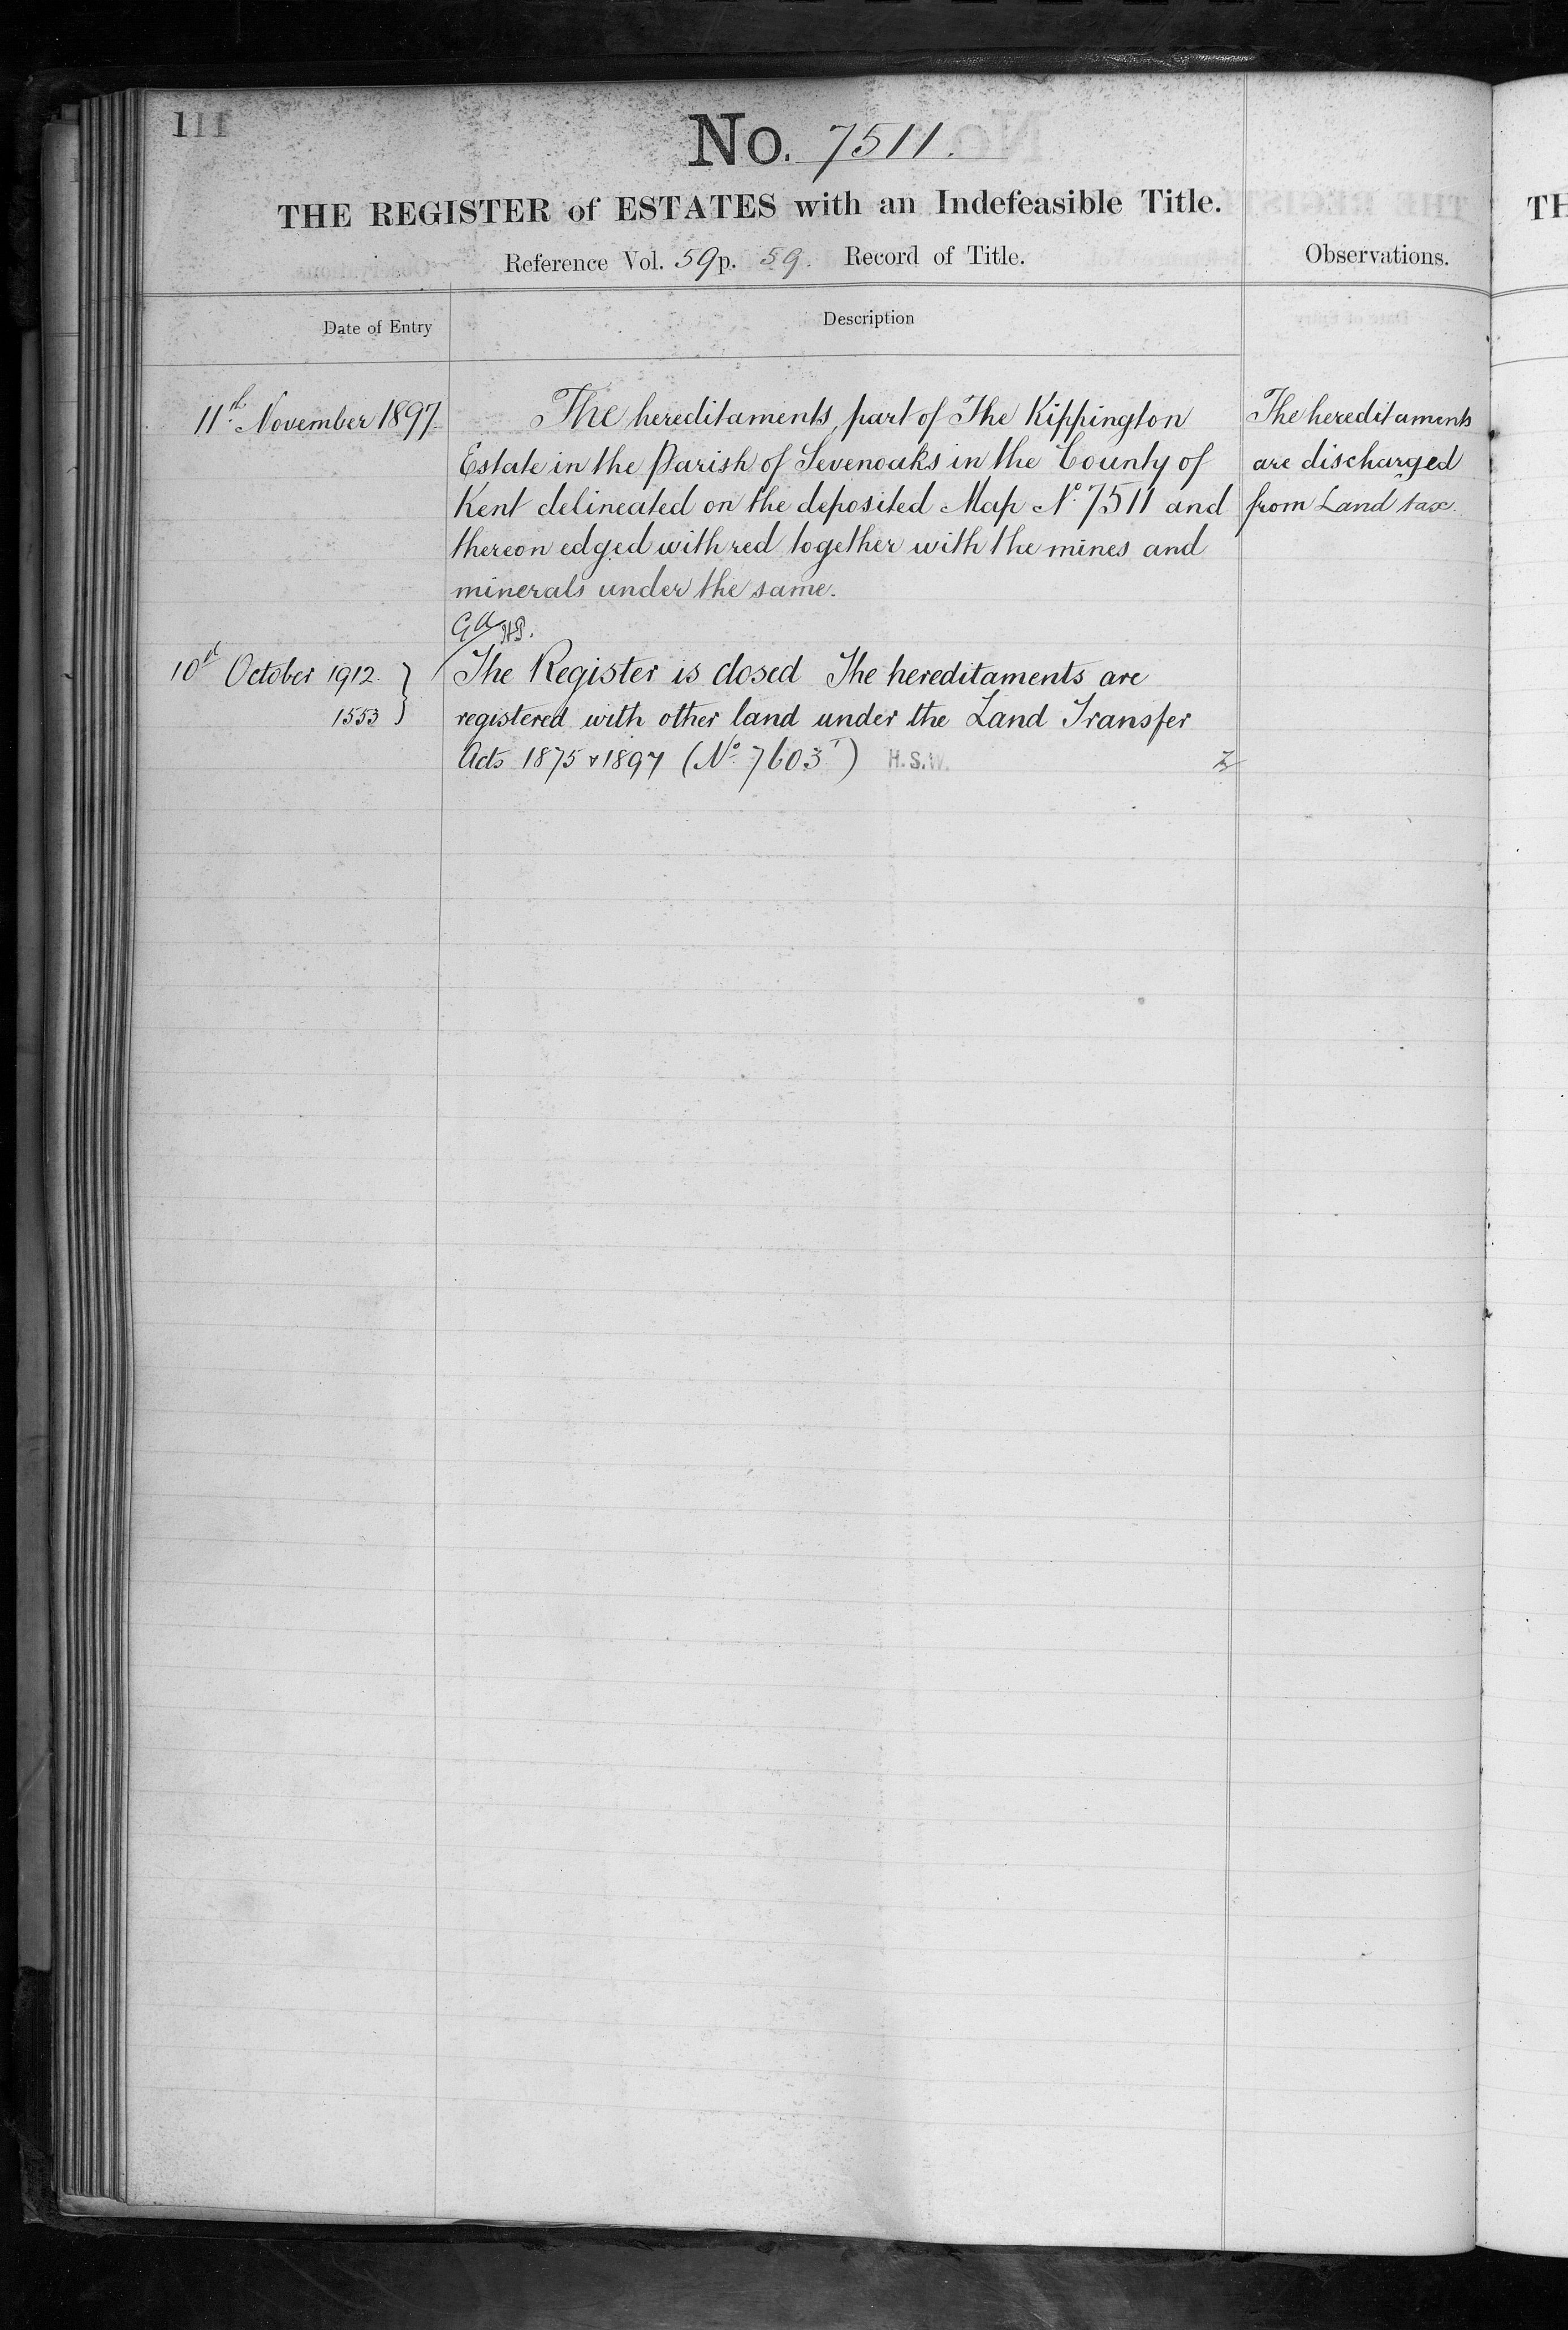 111
No. 7511.
THE REGISTER of ESTATES with an Indefeasible Title.
Reference Vol. 59 p. 59. Record of Title.
Observations.
Date of Entry
Description
11th November 1897.
The hereditaments, part of The Kippington
Estate in the Parish of Sevenoaks in the County of
Kent delineated on the deposited Map No. 7511 and
thereon edged with red together with the mines and
minerals under the same.
The hereditaments
are discharged
from Land tax.
10th October 1912.
1553
The Register is closed The hereditaments are
registered with other land under the Land Transfer
Acts 1875 & 1897 (No. 7603T)
H.S.W.
TH